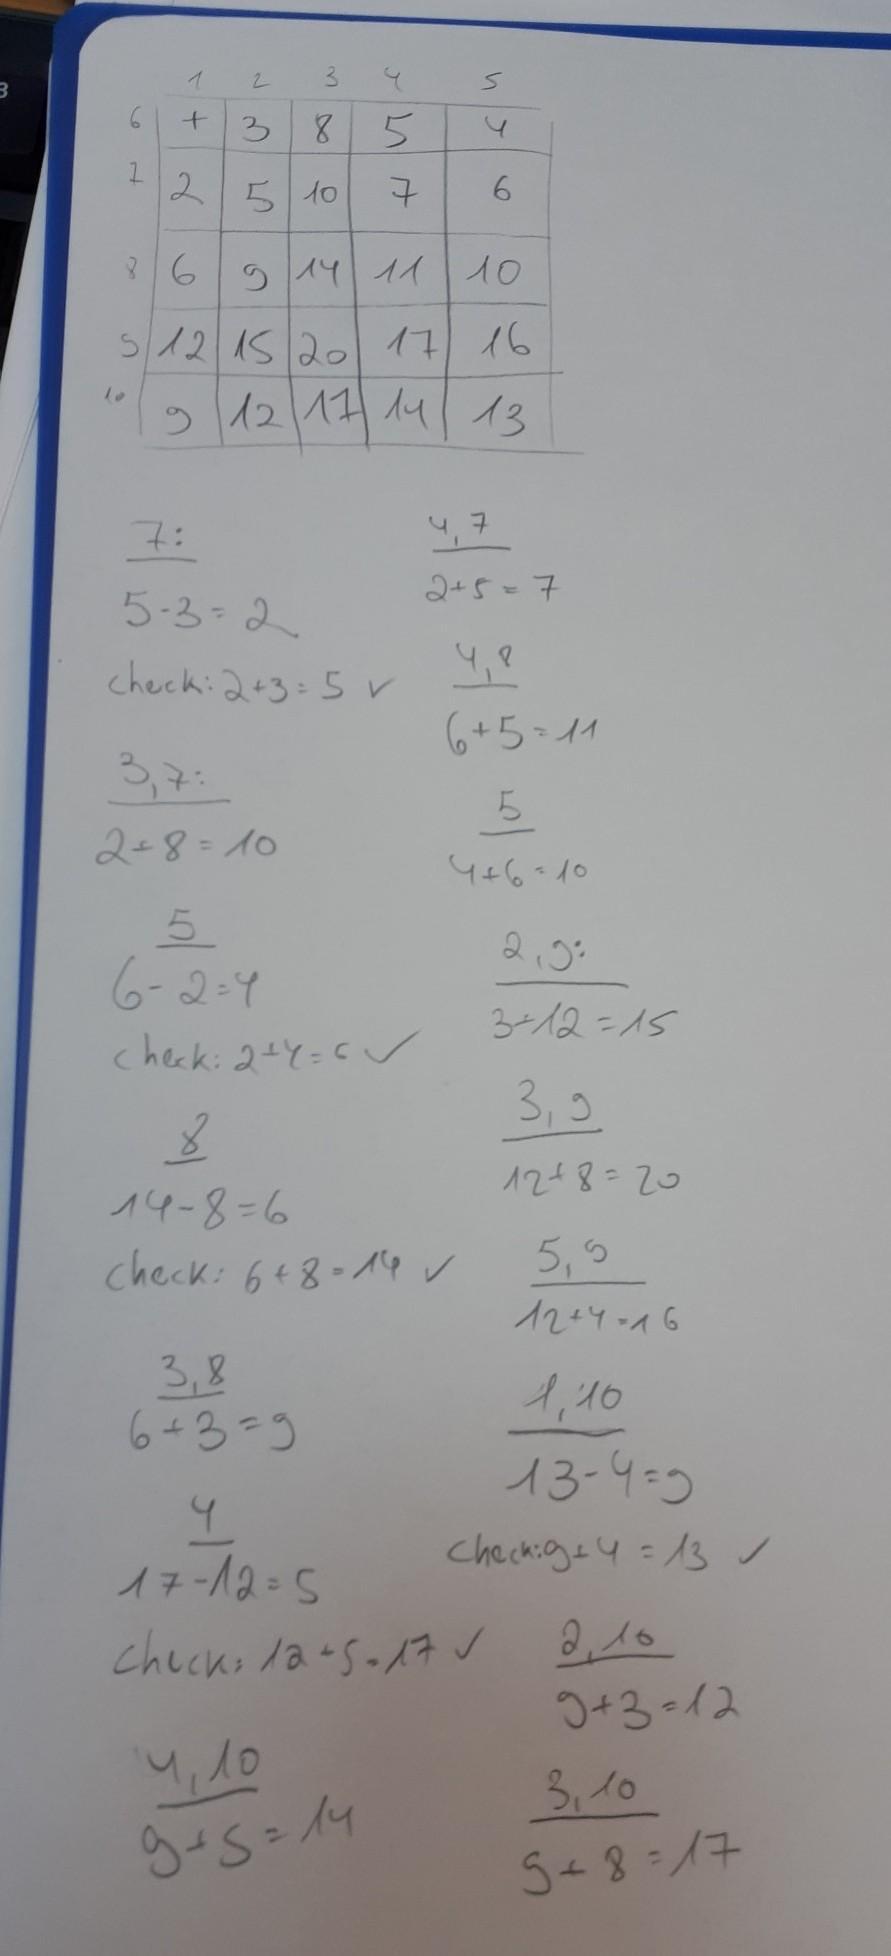 1 2 3 4 5
6 + 3 8 5 4
7 2 5 10 7 6
8 6 9 14 11 10
9 12 15 20 17 16
10 9 12 17 14 13
7:
5-3=2
check: 2+3=5 ✓
3,7:
2+8=10
5
6-2=4
check: 2+4=6 ✓
8
14-8=6
check: 6+8=14 ✓
3,8
6+3=9
4
17-12=5
check: 12+5=17 ✓
4,10
9+5=14
4,7
2+5=7
4,8
6+5=11
5
4+6=10
2,9:
3+12=15
3,9
12+8=20
5,9
12+4=16
1,10
13-4=9
check: 9+4=13 ✓
2,10
9+3=12
3,10
9+8=17